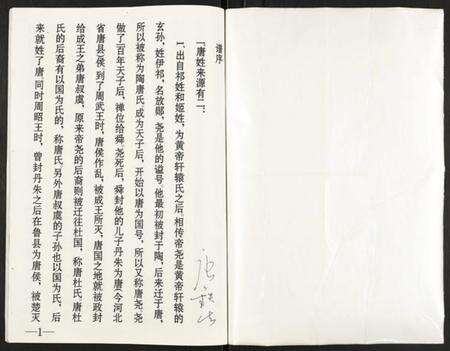 谱序
「唐姓来源有二:
1.出自祁姓和姬姓,为黄帝轩辕氏之后,相传帝尧是黄帝轩辕的
玄孙,姓伊祁,名放勛,尧是他的谥号,他最初被封于陶,后来迁于唐,
所以被称为陶唐氏,成为天子后,开始以唐为国号,所以又称唐尧,尧
做了一百年天子后,禅位给舜,尧死后,舜封他的儿子丹朱为唐(今河北
省唐县)侯,到了周武王时,唐侯作乱,被成王所灭,唐国之地就被改封
给成王之弟唐叔虞,原来帝尧的后裔则被迁往杜国,称唐杜氏,唐杜
氏的后裔有以国为氏的,称唐氏,另外唐叔虞的子孙也以国为氏,后
来就姓了唐,同时周昭王时,曾封丹朱之后在鲁县为唐侯,被楚灭
—1—